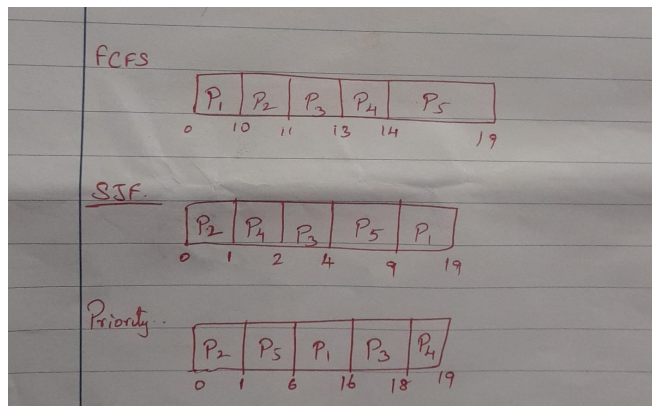 FCFS
P1 P2 P3 P4 P5
0 10 11 13 14 19
SJF.
P2 P4 P3 P5 P1
0 1 2 4 9 19
Priority..
P2 P5 P1 P3 P4
0 1 6 16 18 19